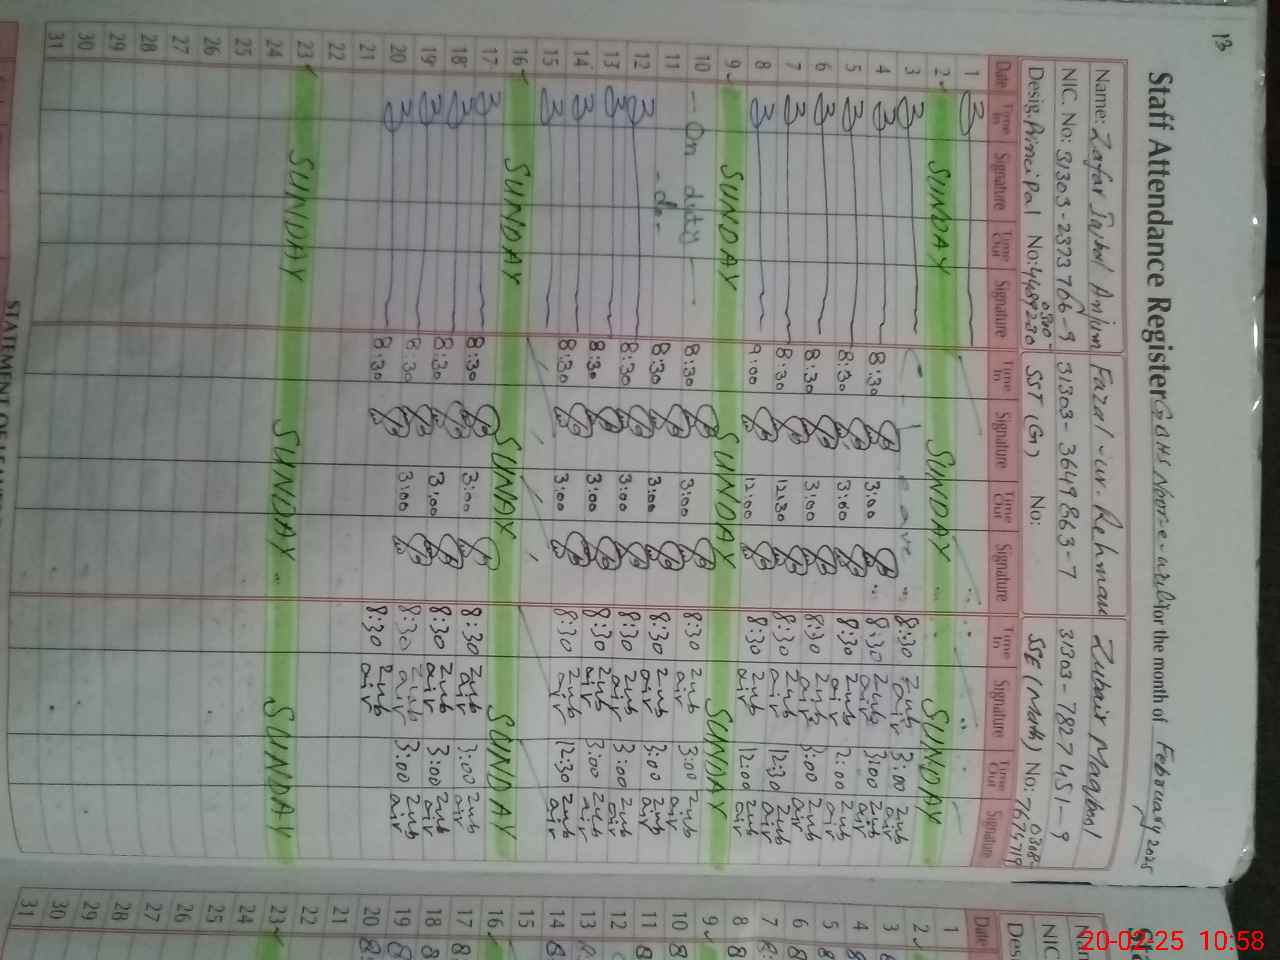 13
Staff Attendance Register for the month of February 2025
Name: Zafar Iqbal Anjum Fazal-ur-Rehman Zubair Maqbool
NIC. No: 31303-2373766-9 31303-3649863-7 31303-7827451-9
0300- 0308-
Desig. Principal No: SST (G) No: SSE (Math) No: 7674719
Date Time In Signature Time Out Signature Time In Signature Time Out Signature Time In Signature Time Out Signature
1
2 SUNDAY SUNDAY SUNDAY
3 Leave 8:30 Zubair 3:00 Zubair
4 8:30 3:00 8:30 Zubair 3:00 Zubair
5 8:30 3:00 8:30 Zubair 2:00 Zubair
6 8:30 3:00 8:30 Zubair 3:00 Zubair
7 8:30 12:30 8:30 Zubair 12:30 Zubair
8 9:00 12:00 8:30 Zubair 12:00 Zubair
9 SUNDAY SUNDAY SUNDAY
10 - On duty - 8:30 3:00 8:30 Zubair 3:00 Zubair
11 - do - 8:30 3:00 8:30 Zubair 3:00 Zubair
12 8:30 3:00 8:30 Zubair 3:00 Zubair
13 8:30 3:00 8:30 Zubair 3:00 Zubair
14 8:30 3:00 8:30 Zubair 12:30 Zubair
15
16 SUNDAY SUNAY SUNDAY
17 8:30 3:00 8:30 Zubair 3:00 Zubair
18 8:30 3:00 8:30 Zubair 3:00 Zubair
19 8:30 3:00 8:30 Zubair 3:00 Zubair
20 8:30 8:30 Zubair
21
22
23 SUNDAY SUNDAY SUNDAY
24
25
26
27
28
29
30
31
STATEMENT OF LEAVE
Sta
Nam
NIC
Desi
Date
1
2
3
4 8
5 8
6 8
7 8
8 8
9
10 8
11 8
12 8
13 8
14 8
15
16
17 8
18 8
19 8
20 8
21
22
23
24
25
26
27
28
29
30
31
20-02-25 10:58